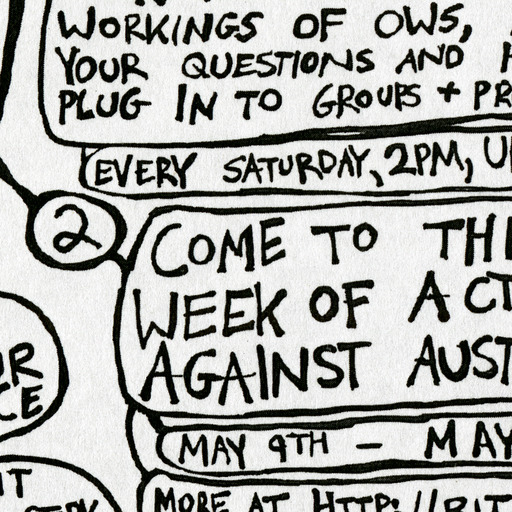 WORKINGS OF OWS,
YOUR QUESTIONS AND H
PLUG IN TO GROUPS + PR
EVERY SATURDAY, 2PM, U
2
COME TO TH
WEEK OF ACT
AGAINST AUST
MAY 9TH – MAY
MORE AT HTTP://BIT
OR
CE
IT